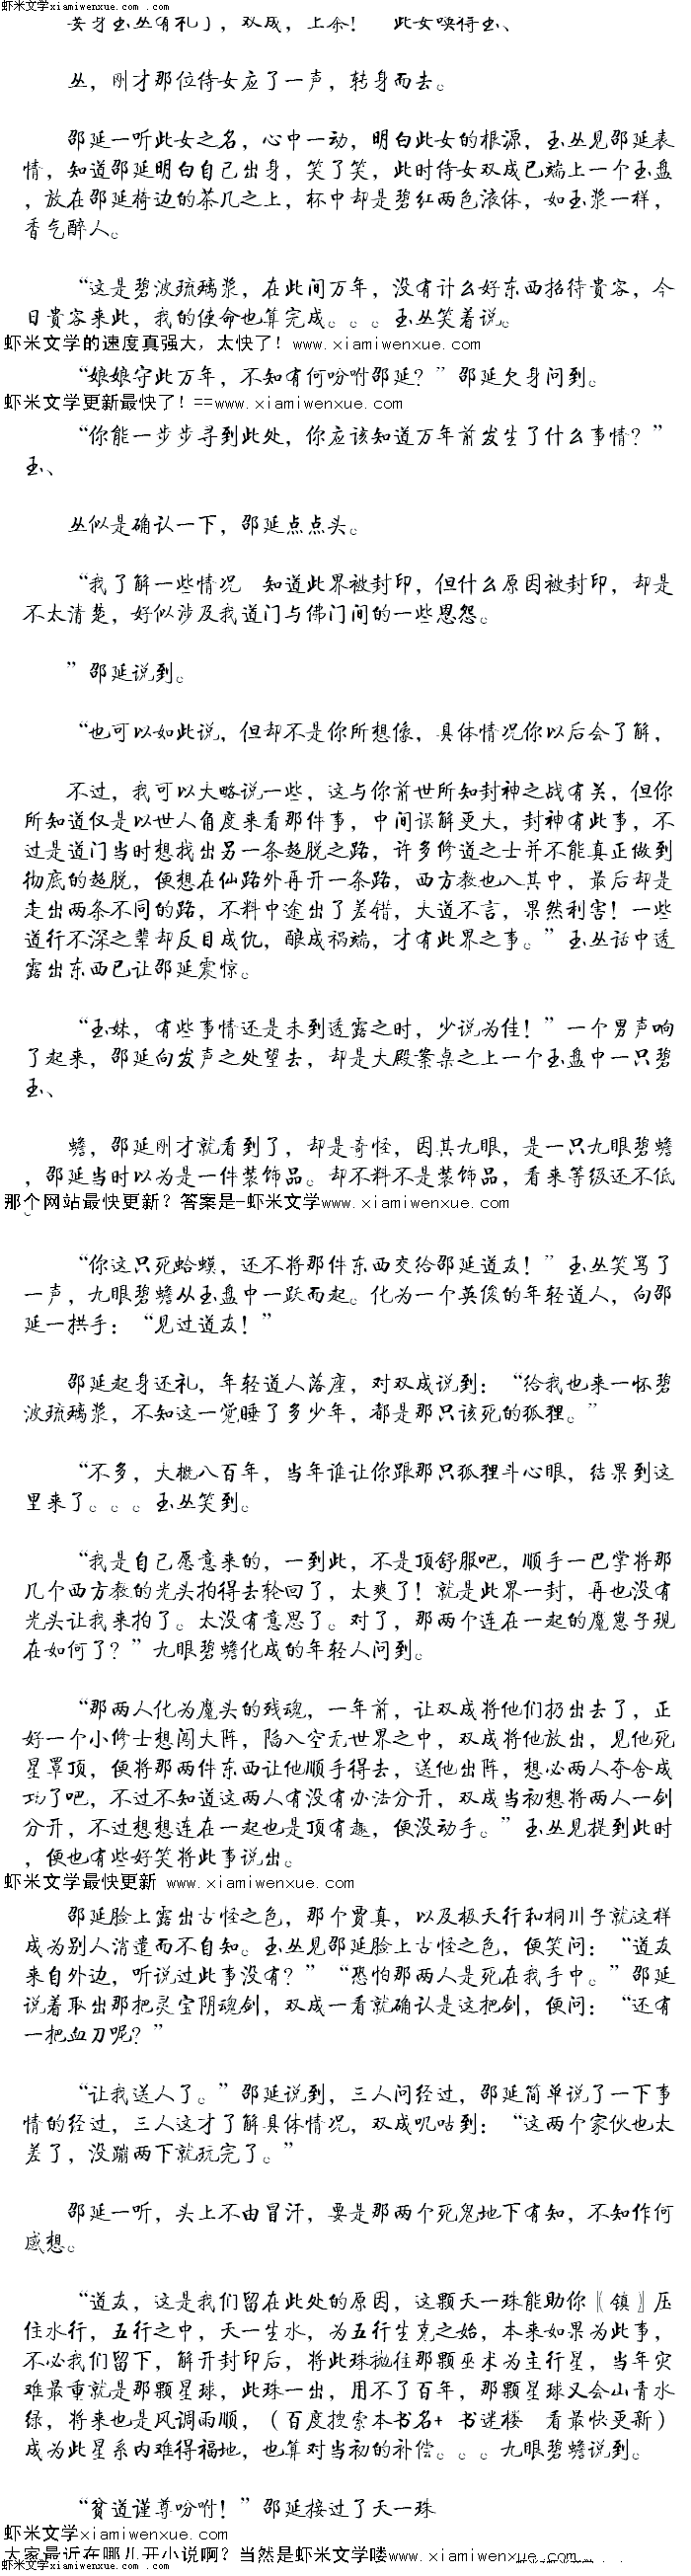 虾米文学xiamiwenxue.com .com
妾身玉丛有礼），双成，上茶！ 此女唤得玉、
丛，刚才那位侍女应了一声，转身而去。
邵延一听此女之名，心中一动，明白此女的根源，玉丛见邵延表
情，知道邵延明白自己出身，笑了笑，此时侍女双成已端上一个玉盘
，放在邵延椅边的茶几之上，杯中却是碧红两色液体，如玉浆一样，
香气醉人。
“这是碧波琉璃浆，在此间万年，没有什么好东西招待贵客，今
日贵客来此，我的使命也算完成。。。玉丛笑着说。
虾米文学的速度真强大，太快了！www.xiamiwenxue.com
“娘娘守此万年，不知有何吩咐邵延？”邵延欠身问到。
虾米文学更新最快了！==www.xiamiwenxue.com
“你能一步步寻到此处，你应该知道万年前发生了什么事情？”
玉、
丛似是确认一下，邵延点点头。
“我了解一些情况 知道此界被封印，但什么原因被封印，却是
不太清楚，好似涉及我道门与佛门间的一些恩怨。
”邵延说到。
“也可以如此说，但却不是你所想像，具体情况你以后会了解，
不过，我可以大略说一些，这与你前世所知封神之战有关，但你
所知道仅是以世人角度来看那件事，中间误解更大，封神有此事，不
过是道门当时想找出另一条超脱之路，许多修道之士并不能真正做到
彻底的超脱，便想在仙路外再开一条路，西方教也入其中，最后却是
走出两条不同的路，不料中途出了差错，大道不言，果然利害！一些
道行不深之辈却反目成仇，酿成祸端，才有此界之事。”玉丛话中透
露出东西已让邵延震惊。
“玉妹，有些事情还是未到透露之时，少说为佳！”一个男声响
了起来，邵延向发声之处望去，却是大殿案桌之上一个玉盘中一只碧
玉、
蟾，邵延刚才就看到了，却是奇怪，因其九眼，是一只九眼碧蟾
，邵延当时以为是一件装饰品。却不料不是装饰品，看来等级还不低
那个网站最快更新？答案是-虾米文学www.xiamiwenxue.com
。
“你这只死蛤蟆，还不将那件东西交给邵延道友！”玉丛笑骂了
一声，九眼碧蟾从玉盘中一跃而起。化为一个英俊的年轻道人，向邵
延一拱手：“见过道友！”
邵延起身还礼，年轻道人落座，对双成说到：“给我也来一怀碧
波琉璃浆，不知这一觉睡了多少年，都是那只该死的狐狸。”
“不多，大概八百年，当年谁让你跟那只狐狸斗心眼，结果到这
里来了。。。玉丛笑到。
“我是自己愿意来的，一到此，不是顶舒服吧，顺手一巴掌将那
几个西方教的光头拍得去轮回了，太爽了！就是此界一封，再也没有
光头让我来拍了。太没有意思了。对了，那两个连在一起的魔崽子现
在如何了？”九眼碧蟾化成的年轻人问到。
“那两人化为魔头的残魂，一年前，让双成将他们扔出去了，正
好一个小修士想闯大阵，陷入空无世界之中，双成将他放出，见他死
星罩顶，便将那两件东西让他顺手得去，送他出阵，想必两人夺舍成
功了吧，不过不知道这两人有没有办法分开，双成当初想将两人一剑
分开，不过想想连在一起也是顶有趣，便没动手。”玉丛见提到此时
，便也有些好笑将此事说出。
虾米文学最快更新 www.xiamiwenxue.com
邵延脸上露出古怪之色，那个贾真，以及极天行和桐川子就这样
成为别人消遣而不自知。玉丛见邵延脸上古怪之色，便笑问：“道友
来自外边，听说过此事没有？”“恐怕那两人是死在我手中。”邵延
说着取出那把灵宝阴魂剑，双成一看就确认是这把剑，便问：“还有
一把血刀呢？”
“让我送人了。”邵延说到，三人问经过，邵延简单说了一下事
情的经过，三人这才了解具体情况，双成叽咕到：“这两个家伙也太
差了，没蹦两下就玩完了。”
邵延一听，头上不由冒汗，要是那两个死鬼地下有知，不知作何
感想。
“道友，这是我们留在此处的原因，这颗天一珠能助你〖镇〗压
住水行，五行之中，天一生水，为五行生克之始，本来如果为此事，
不必我们留下，解开封印后，将此珠抛往那颗巫术为主行星，当年灾
难最重就是那颗星球，此珠一出，用不了百年，那颗星球又会山青水
绿，将来也是风调雨顺，（百度搜索本书名+ 书迷楼 看最快更新）
成为此星系内难得福地，也算对当初的补偿。。。九眼碧蟾说到。
“贫道谨尊吩咐！”邵延接过了天一珠
虾米文学www.xiamiwenxue.com
大家最近在哪儿开小说啊？当然是虾米文学喽www.xiamiwenxue.com
虾米文学xiamiwenxue.com .com